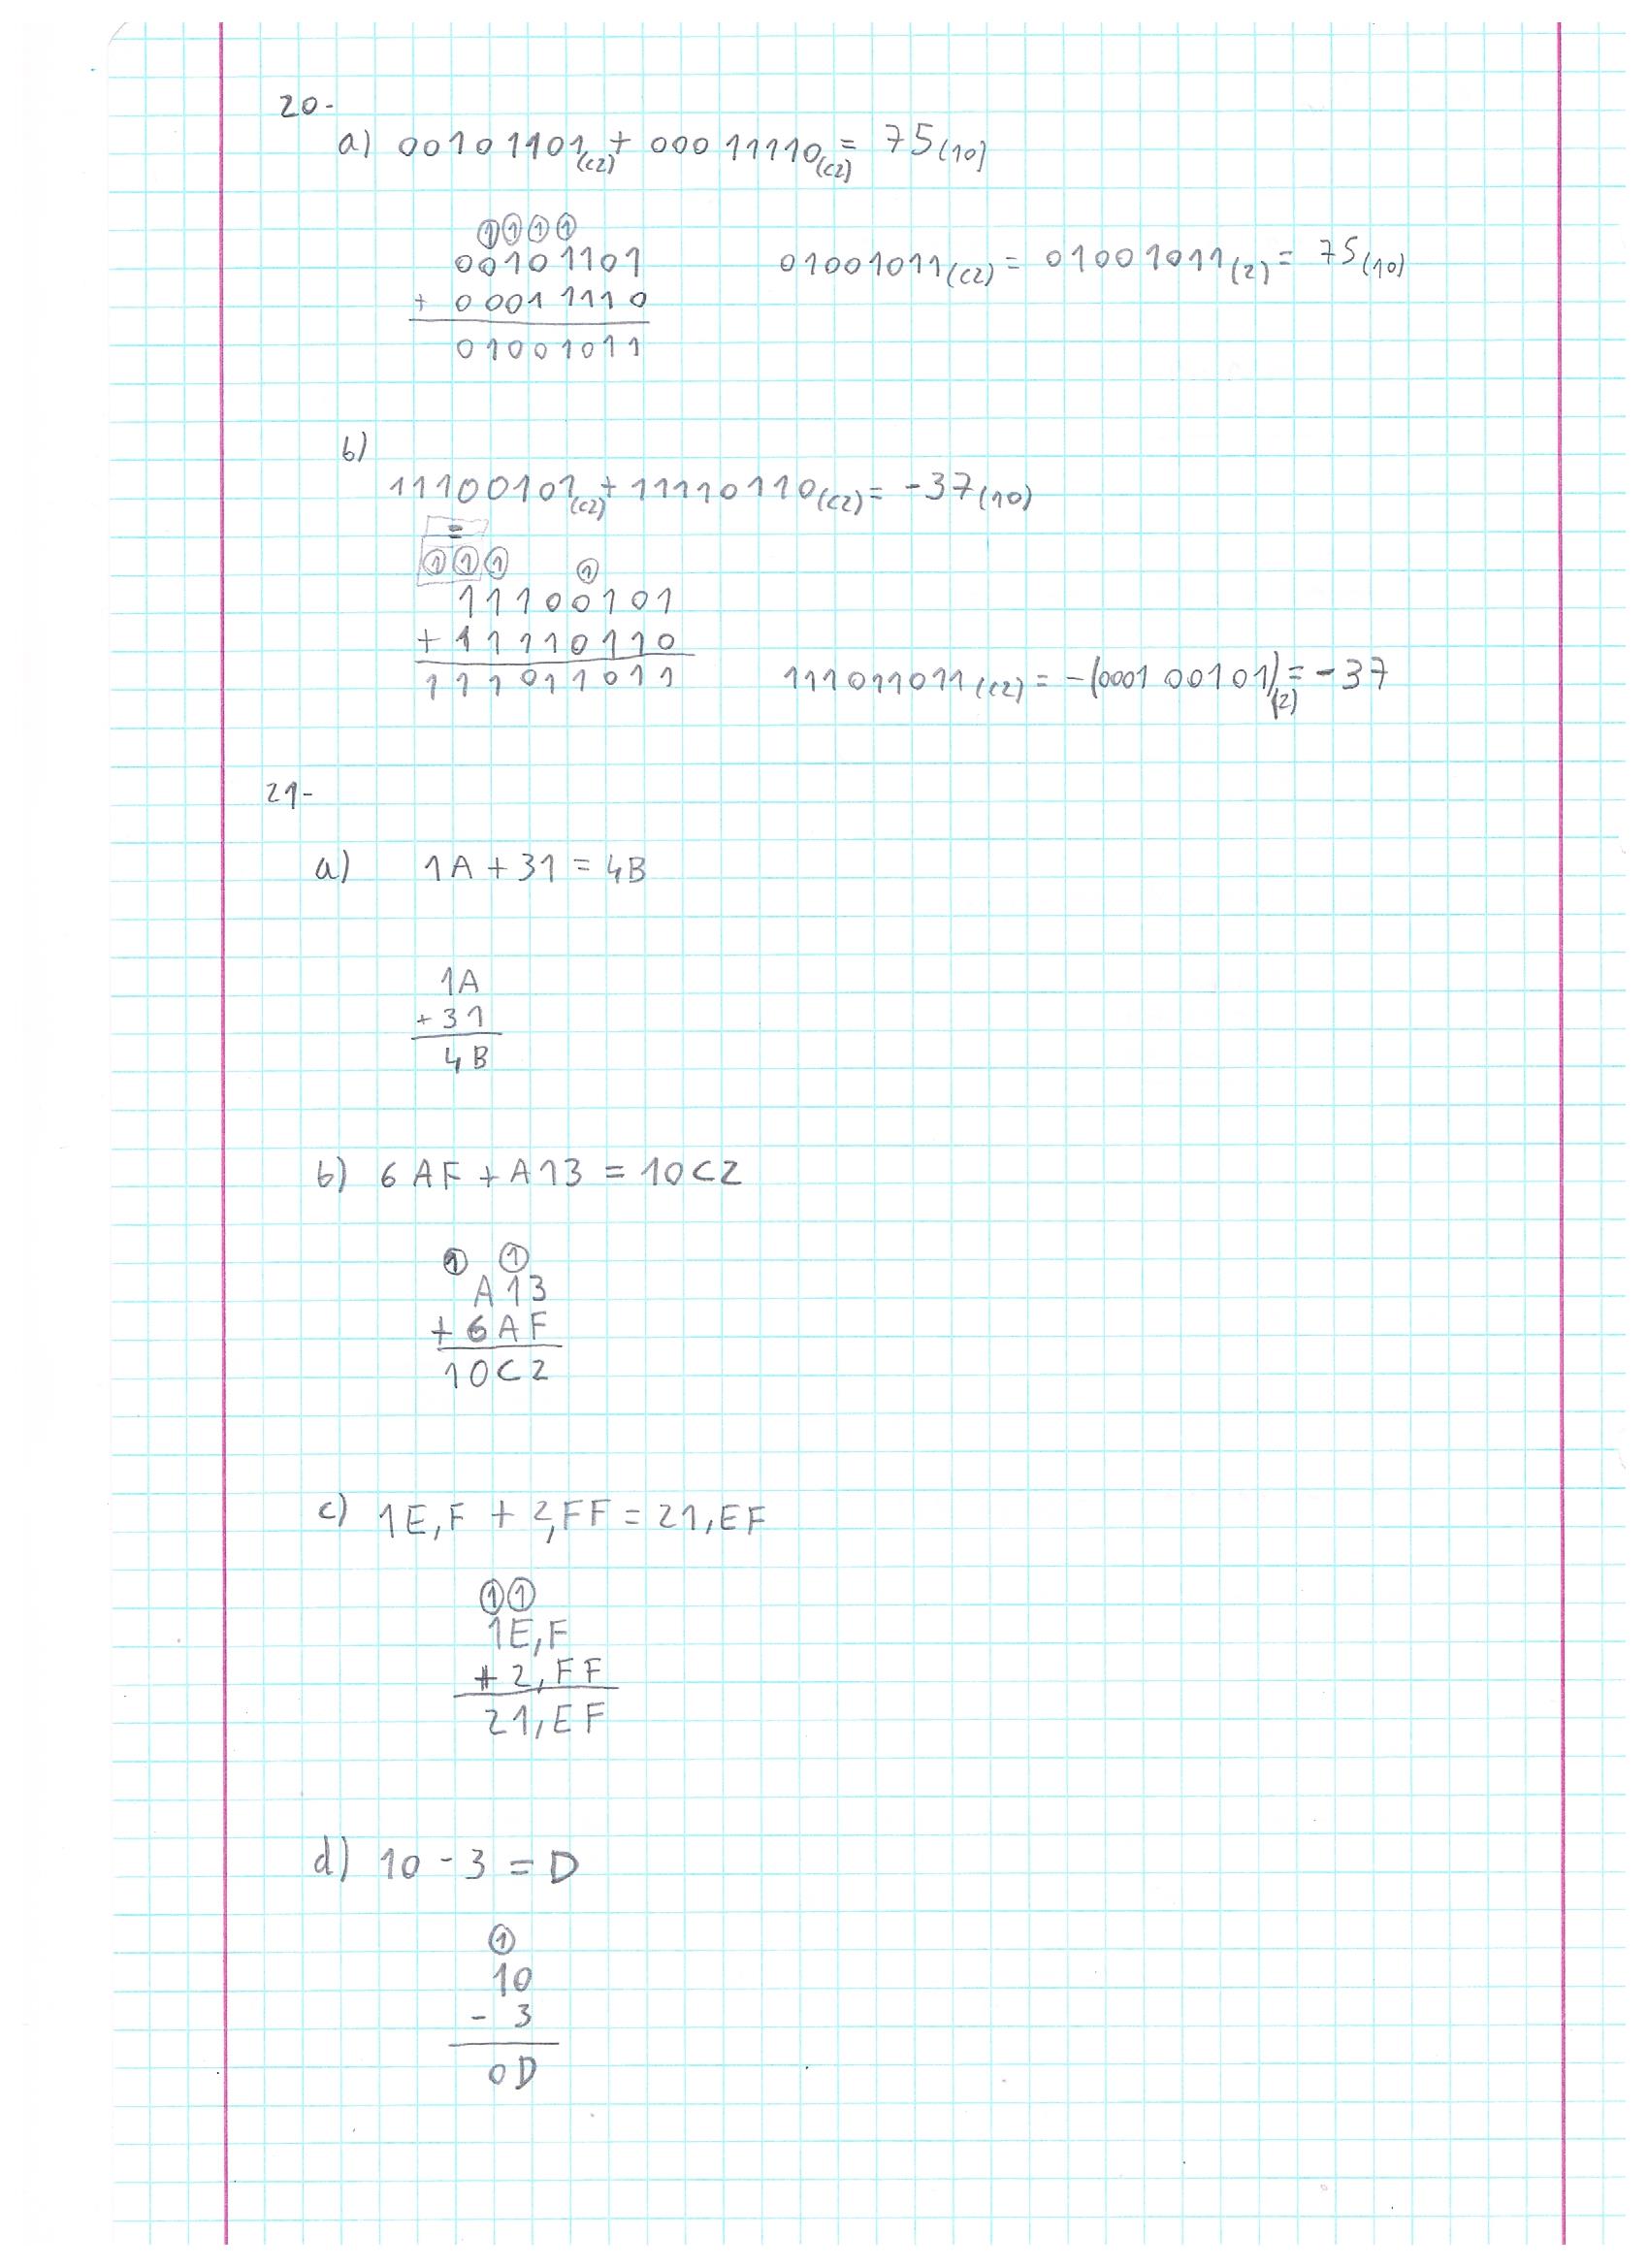 20-
a) 00101101(C2) + 00011110(C2) = 75(10)
1 1 1 1
00101101
+ 00011110
01001011
01001011(C2) = 01001011(2) = 75(10)
b)
11100101(C2) + 11110110(C2) = -37(10)
=
1 1 1 1
11100101
+ 11110110
111011011
111011011(C2) = -(000100101)(2) = -37
21-
a) 1A + 31 = 4B
1A
+ 31
4B
b) 6AF + A13 = 10C2
1 1
A13
+ 6AF
10C2
c) 1E,F + 2,FF = 21,EF
1 1
1E,F
+ 2,FF
21,EF
d) 10 - 3 = D
1
10
- 3
0D